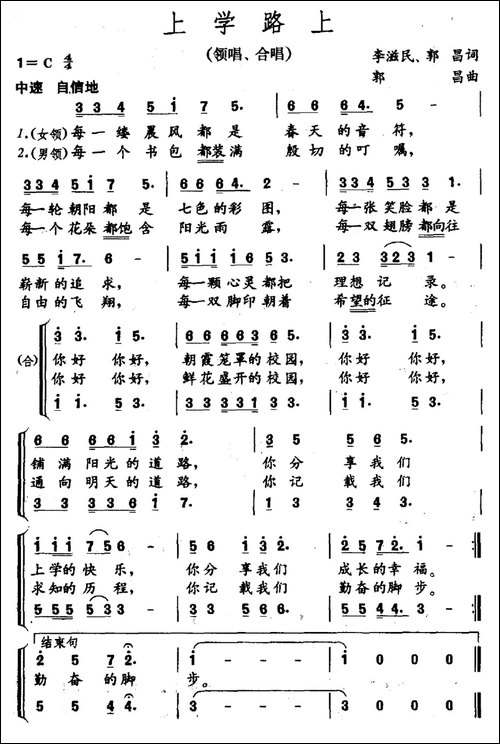 上学路上
(领唱、合唱)
1=C 4/4
李滋民、郭昌词
中速 自信地
郭昌曲
3 3 4 5 i 7 5. | 6 6 6 4. 5 - |
1.(女领)每一缕晨风都是 春天的音符,
2.(男领)每一个书包都装满 殷切的叮嘱,
3 3 4 5 i 7 5. | 6 6 6 4. 2 - | 3 3 4 5 3 3 1. |
每一轮朝阳都是 七色的彩图, 每一张笑脸都是
每一个花朵都饱含 阳光雨露, 每一双翅膀都向往
5 5 i 7. 6 - | 5 i i i i 6 5 3. | 2 3 3 2 3 1 - |
崭新的追求, 每一颗心灵都把 理想记录。
自由的飞翔, 每一双脚印朝着 希望的征途。
3 3. i 5. | 6 6 6 6 3 6 5. | 3 3. i 5. |
(合) 你好你好, 朝霞笼罩的校园, 你好你好,
你好你好, 鲜花盛开的校园, 你好你好,
i i. 5 3. | 3 3 3 3 1 3 3. | i i. 5 3. |
6 6 6 6 i 3 2. | 3 5 5 6 5. |
铺满阳光的道路, 你分享我们
通向明天的道路, 你记载我们
3 3 3 3 6 i 7. | i 3 3 4 3. |
i i i 7 5 6 - | 5 6 i 3 2. | 2 5 7 2. i - :||
上学的快乐, 你分享我们 成长的幸福。
求知的历程, 你记载我们 勤奋的脚步。
5 5 5 5 3 3 - | 3 3 5 6 6. | 5 5 4 4. 3 - :||
结束句
2 5 7 2. | i - - - | i 0 0 0
勤奋的脚步。
5 5 4 4. | 3 - - - | 3 0 0 0